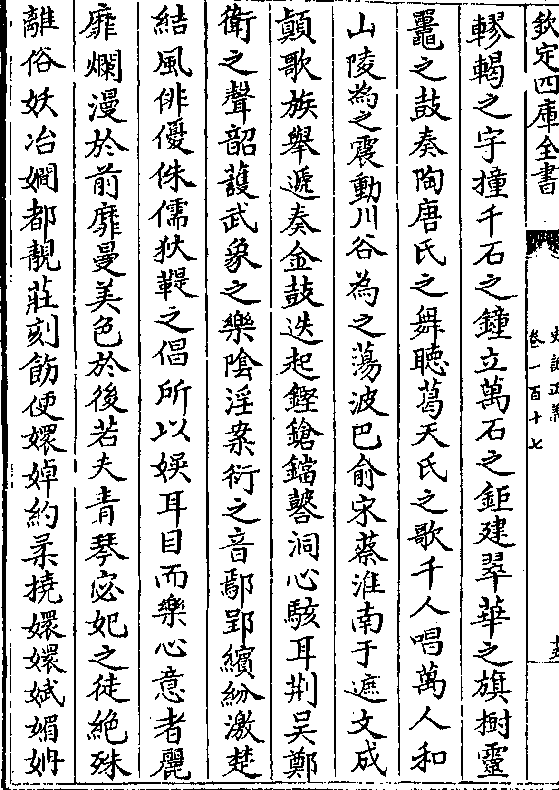 欽定四庫全書
史記正義
卷一百十七
轇轕之宇撞千石之鐘立萬石之鉅建翠華之旗樹靈
鼉之鼓奏陶唐氏之舞聽葛天氏之歌千人唱萬人和
山陵為之震動川谷為之蕩波巴俞宋蔡淮南于遮文成
顛歌族舉遞奏金鼓迭起鏗鎗鐺鼛洞心駭耳荆吴鄭
衛之聲韶頀武象之樂隂淫案衍之音鄢郢繽紛激楚
結風俳優侏儒狄鞮之倡所以娛耳目而樂心意者麗
靡爛漫於前靡曼美色於後若夫青琴宓妃之徒絶殊
離俗妖冶嫺都靚莊刻飭便嬛婥約柔撓嬛嬛嫵媚姌